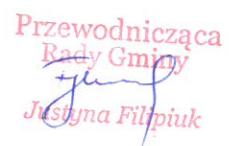 Przewodnicząca
Rady Gminy
Justyna Filipiuk